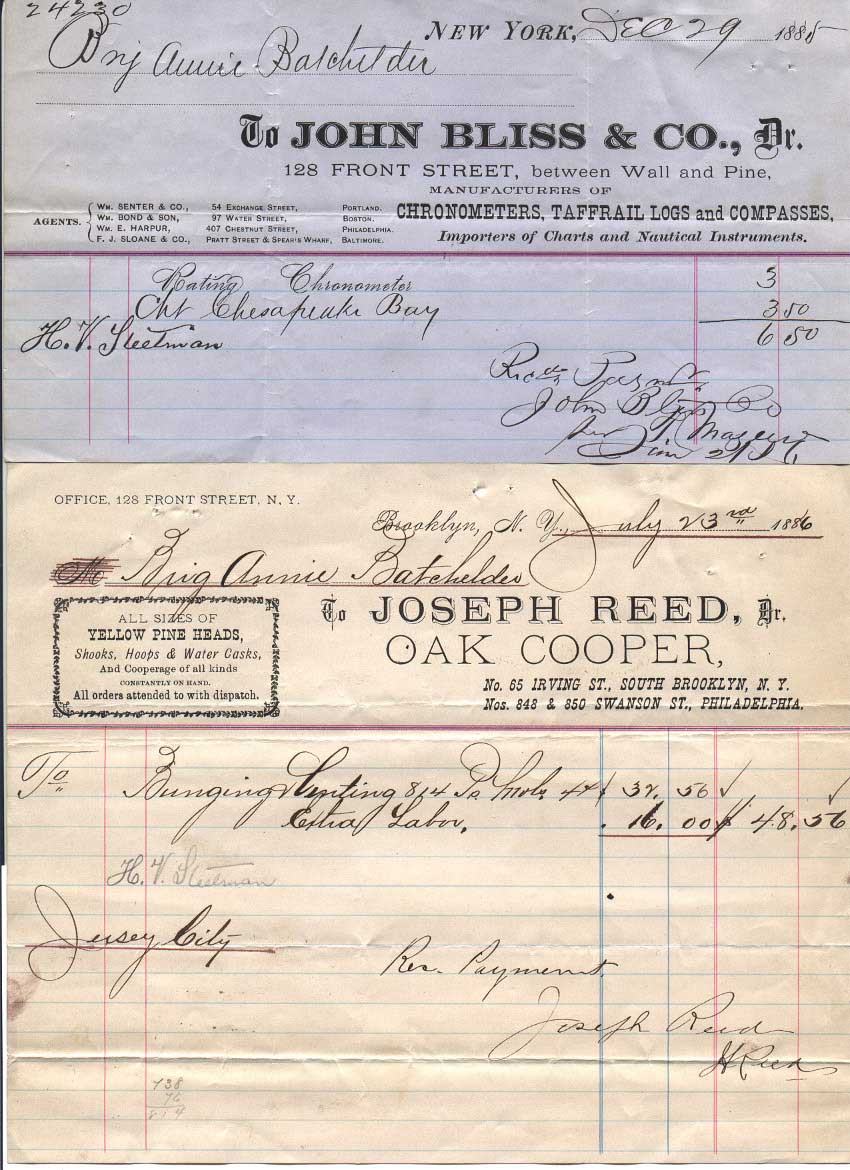 24230
NEW YORK, DEC 29 1885
Brig Annie Batchelder
To JOHN BLISS & CO., Dr.
128 FRONT STREET, between Wall and Pine,
MANUFACTURERS OF
CHRONOMETERS, TAFFRAIL LOGS and COMPASSES,
Importers of Charts and Nautical Instruments.
AGENTS.
WM. SENTER & CO., 54 EXCHANGE STREET, PORTLAND.
WM. BOND & SON, 97 WATER STREET, BOSTON.
WM. E. HARPUR, 407 CHESTNUT STREET, PHILADELPHIA.
F. J. SLOANE & CO., PRATT STREET & SPEAR'S WHARF, BALTIMORE.
Rating Chronometer 3
Cht Chesapeake Bay 3 50
6 50
H. V. Steelman
Recd Paymt
John Bliss & Co
OFFICE, 128 FRONT STREET, N. Y.
Brooklyn, N. Y., July 23rd 1886
M Brig Annie Batchelder
To JOSEPH REED, Dr.
OAK COOPER,
No. 65 IRVING ST., SOUTH BROOKLYN, N. Y.
Nos. 848 & 850 SWANSON ST., PHILADELPHIA.
ALL SIZES OF
YELLOW PINE HEADS,
Shooks, Hoops & Water Casks,
And Cooperage of all kinds
CONSTANTLY ON HAND.
All orders attended to with dispatch.
To Bunging & Venting 814 4¢ 32.56
Extra Labor, 16.00 $ 48.56
H. V. Steelman
Jersey City
Rec. Payment
Joseph Reed
H Reed
738
76
814